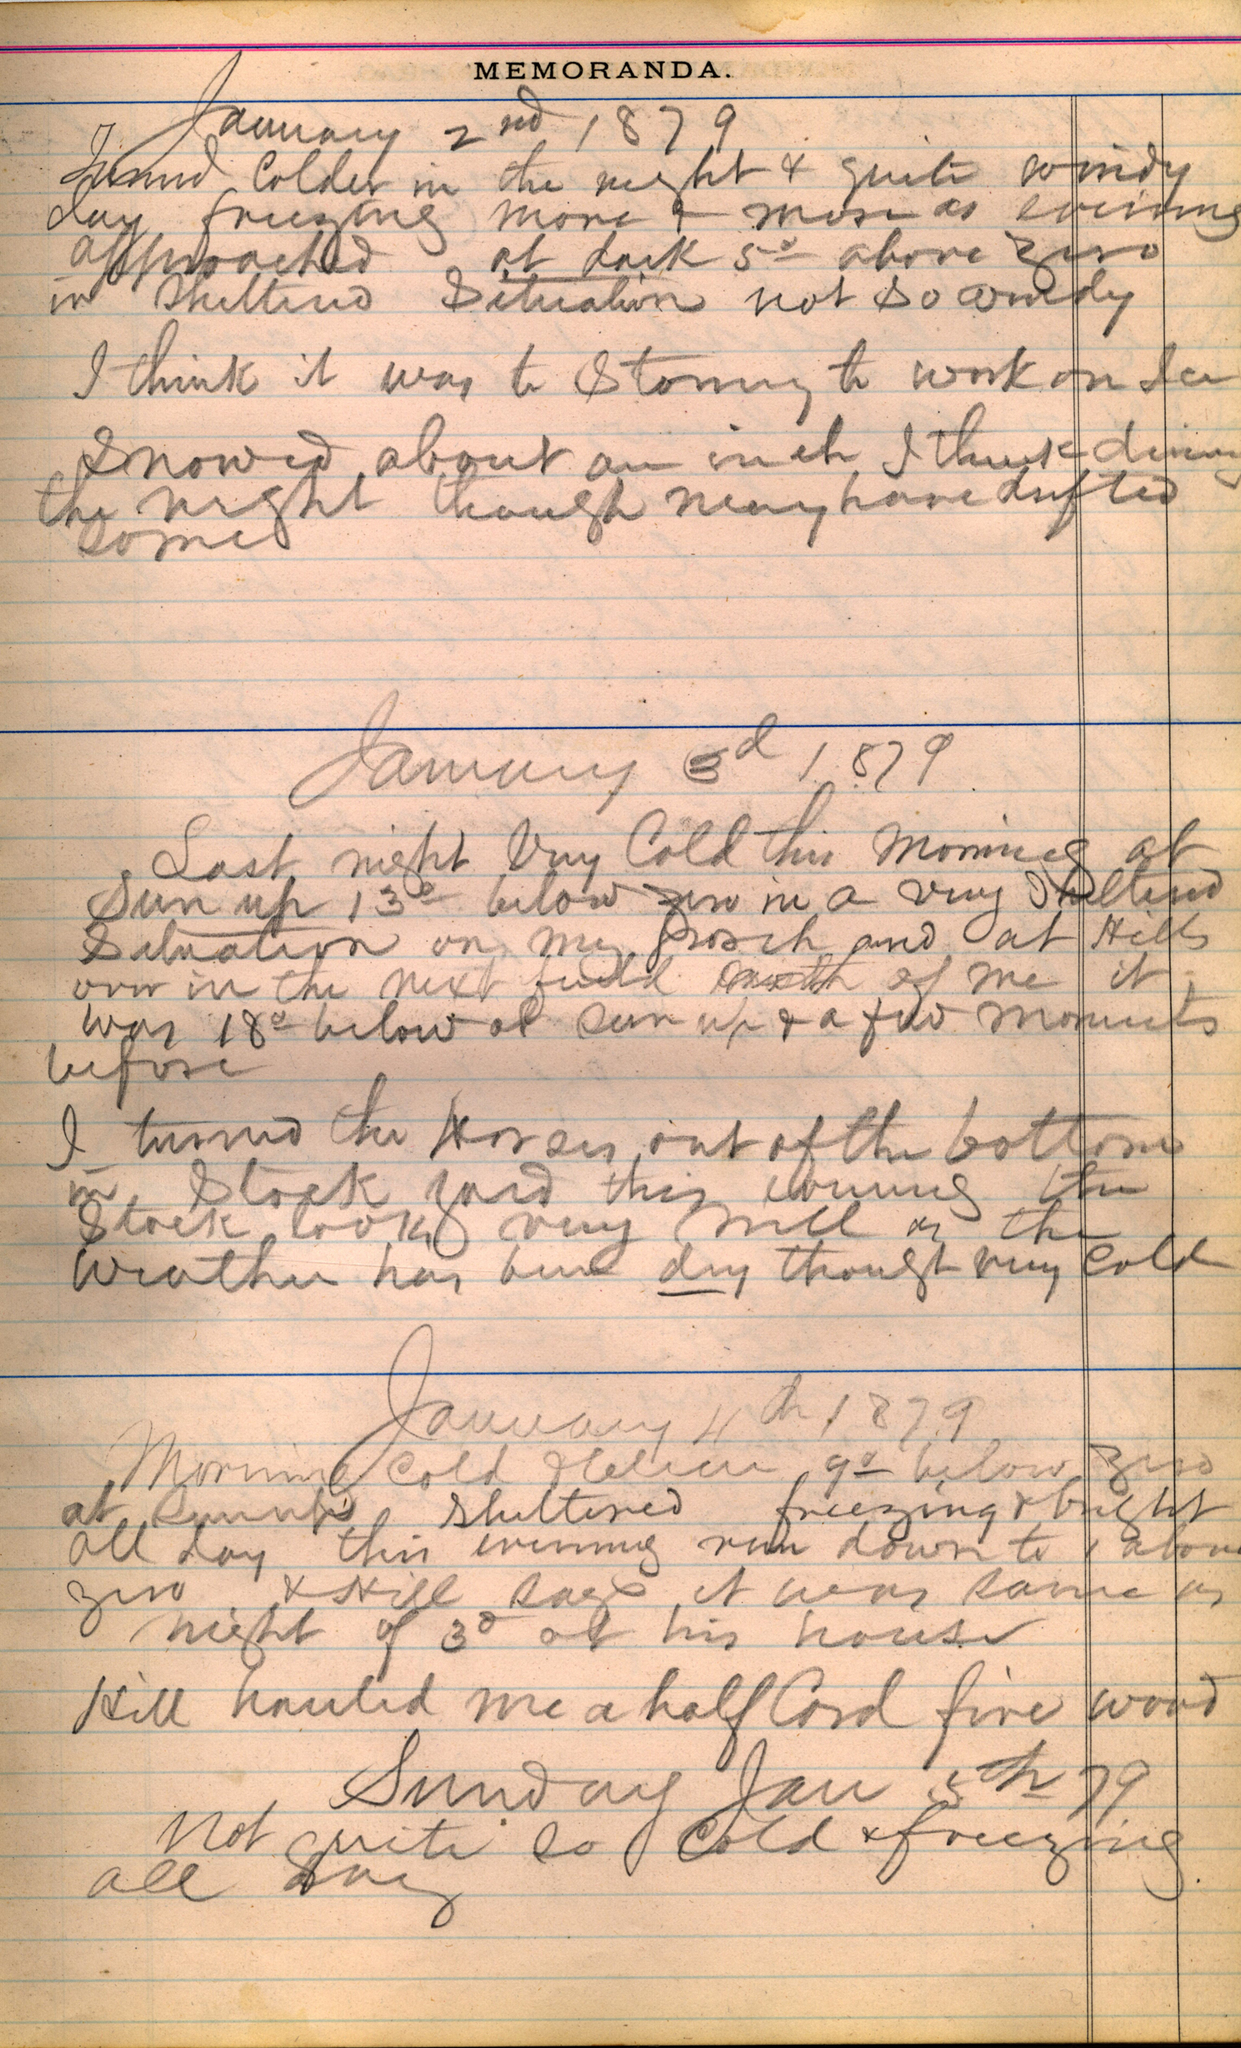 MEMORANDA.
January 2nd 1879
Turned Colder in the night & quite windy
day freezing more & more as evening
approached at dark 5° above zero
in Sheltered Situation not so windy
I think it was to Stormy to work on Ice
Snowed about an inch I think during
the night though may have drifted
some
January 3d 1879
Last night Very Cold this Morning at
Sun up 13° below zero in a very Sheltered
Situation on my porch and at Hills
over in the next field of me it
was 18° below at Sun up & a few Moments
before
I turned the Horses out of the bottom
in Stock yard this evening the
Stock looks very well as the
Weather has been dry though very Cold
January 4th 1879
Morning Cold 9° below zero
at Sunup Sheltered freezing & bright
all day this evening run down to 1 above
zero & Hill says it was same as
night of 3d at his house
Hill hauled me a half Cord fire wood
Sunday Jan 5th 79
Not quite so Cold & freezing
all day